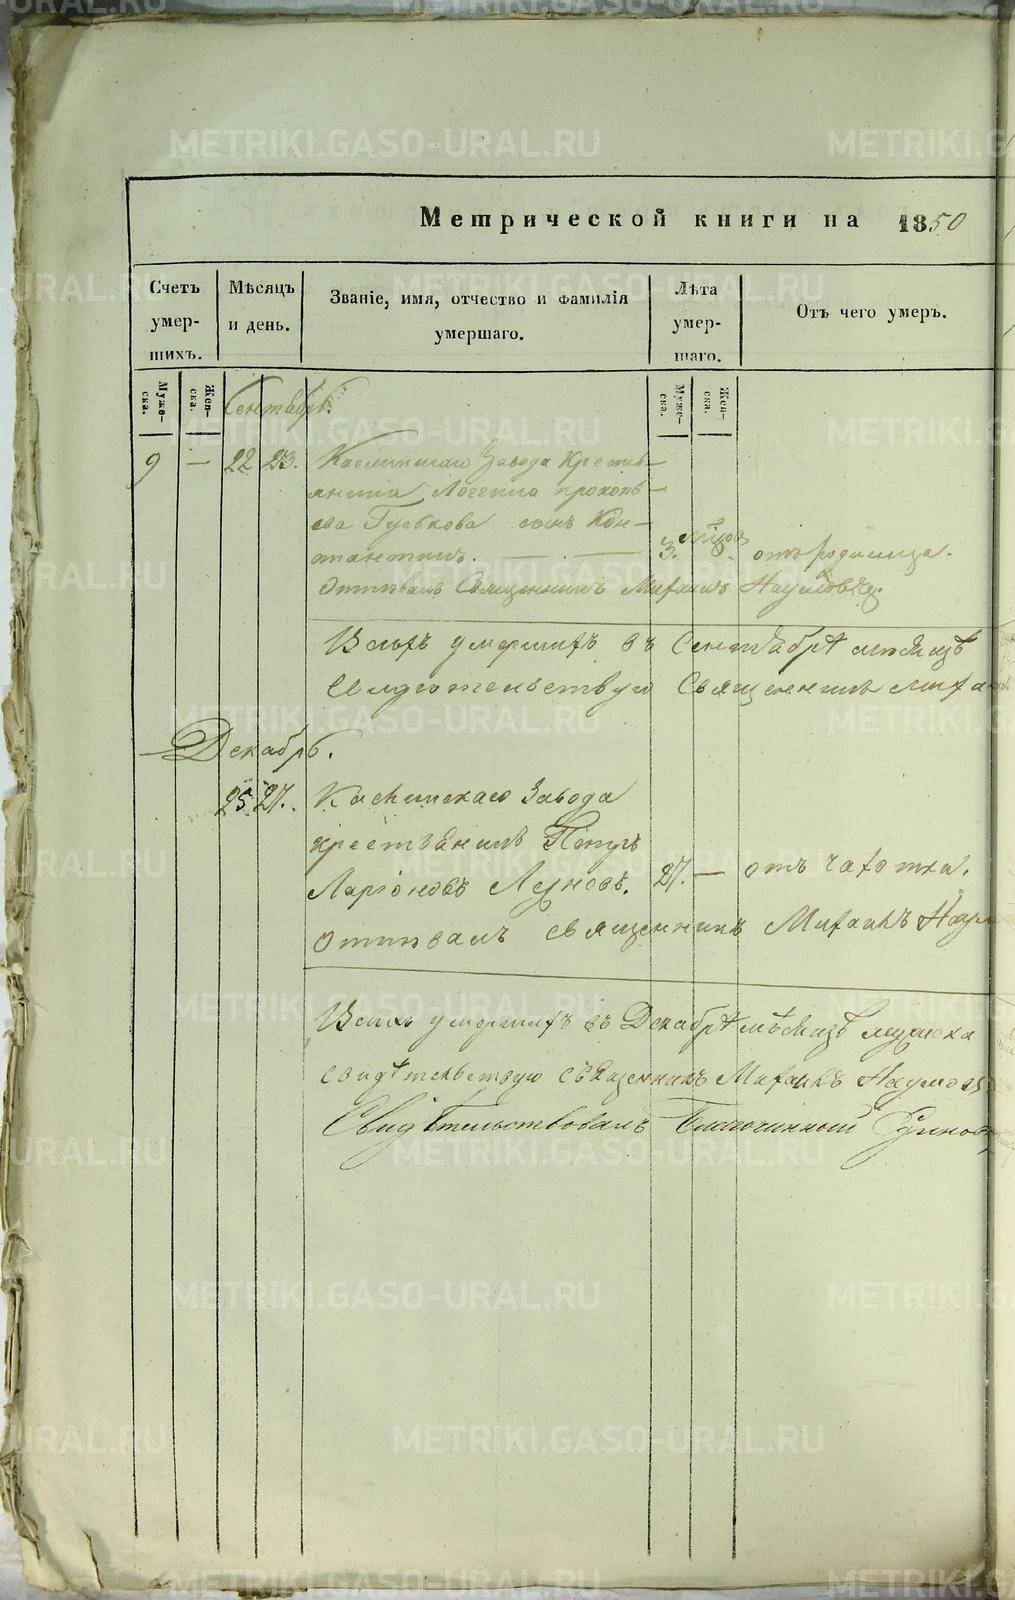 Метрической книги на 1850
Счетъ умер-шихъ.
Мѣсяцъ и день.
Званіе, имя, отчество и фамилія умершаго.
Лѣта умер-шаго.
Отъ чего умеръ.
Муже-ска.
Жен-ска.
Муже-ска.
Жен-ска.
Сентябрь.
9 — 22 23. Каслинскаго Завода Кресть-
янина Логгина прокопь-
ева Губкова сынъ Кон-
тантинъ. — . — 3. мѣсяц. отъ родимца.
Отпѣвалъ Священникъ Михаилъ Наумовъ.
Всѣхъ умершихъ въ Сентябрѣ мѣсяцѣ
Свидетельствую Священникъ Миха
Декабрь.
25 27. Каслинскаго Завода
крестьянинъ Петръ
Ларіоновъ 27. — отъ чахотки.
отпѣвалъ священникъ Михаилъ Наум
Всѣхъ умершихъ въ Декабрѣ мѣсяцѣ мужска
свидѣтельствую священникъ Михаилъ Наумовъ
Свидѣтельствовалъ Благочинный
METRIKI.GASO-URAL.RU